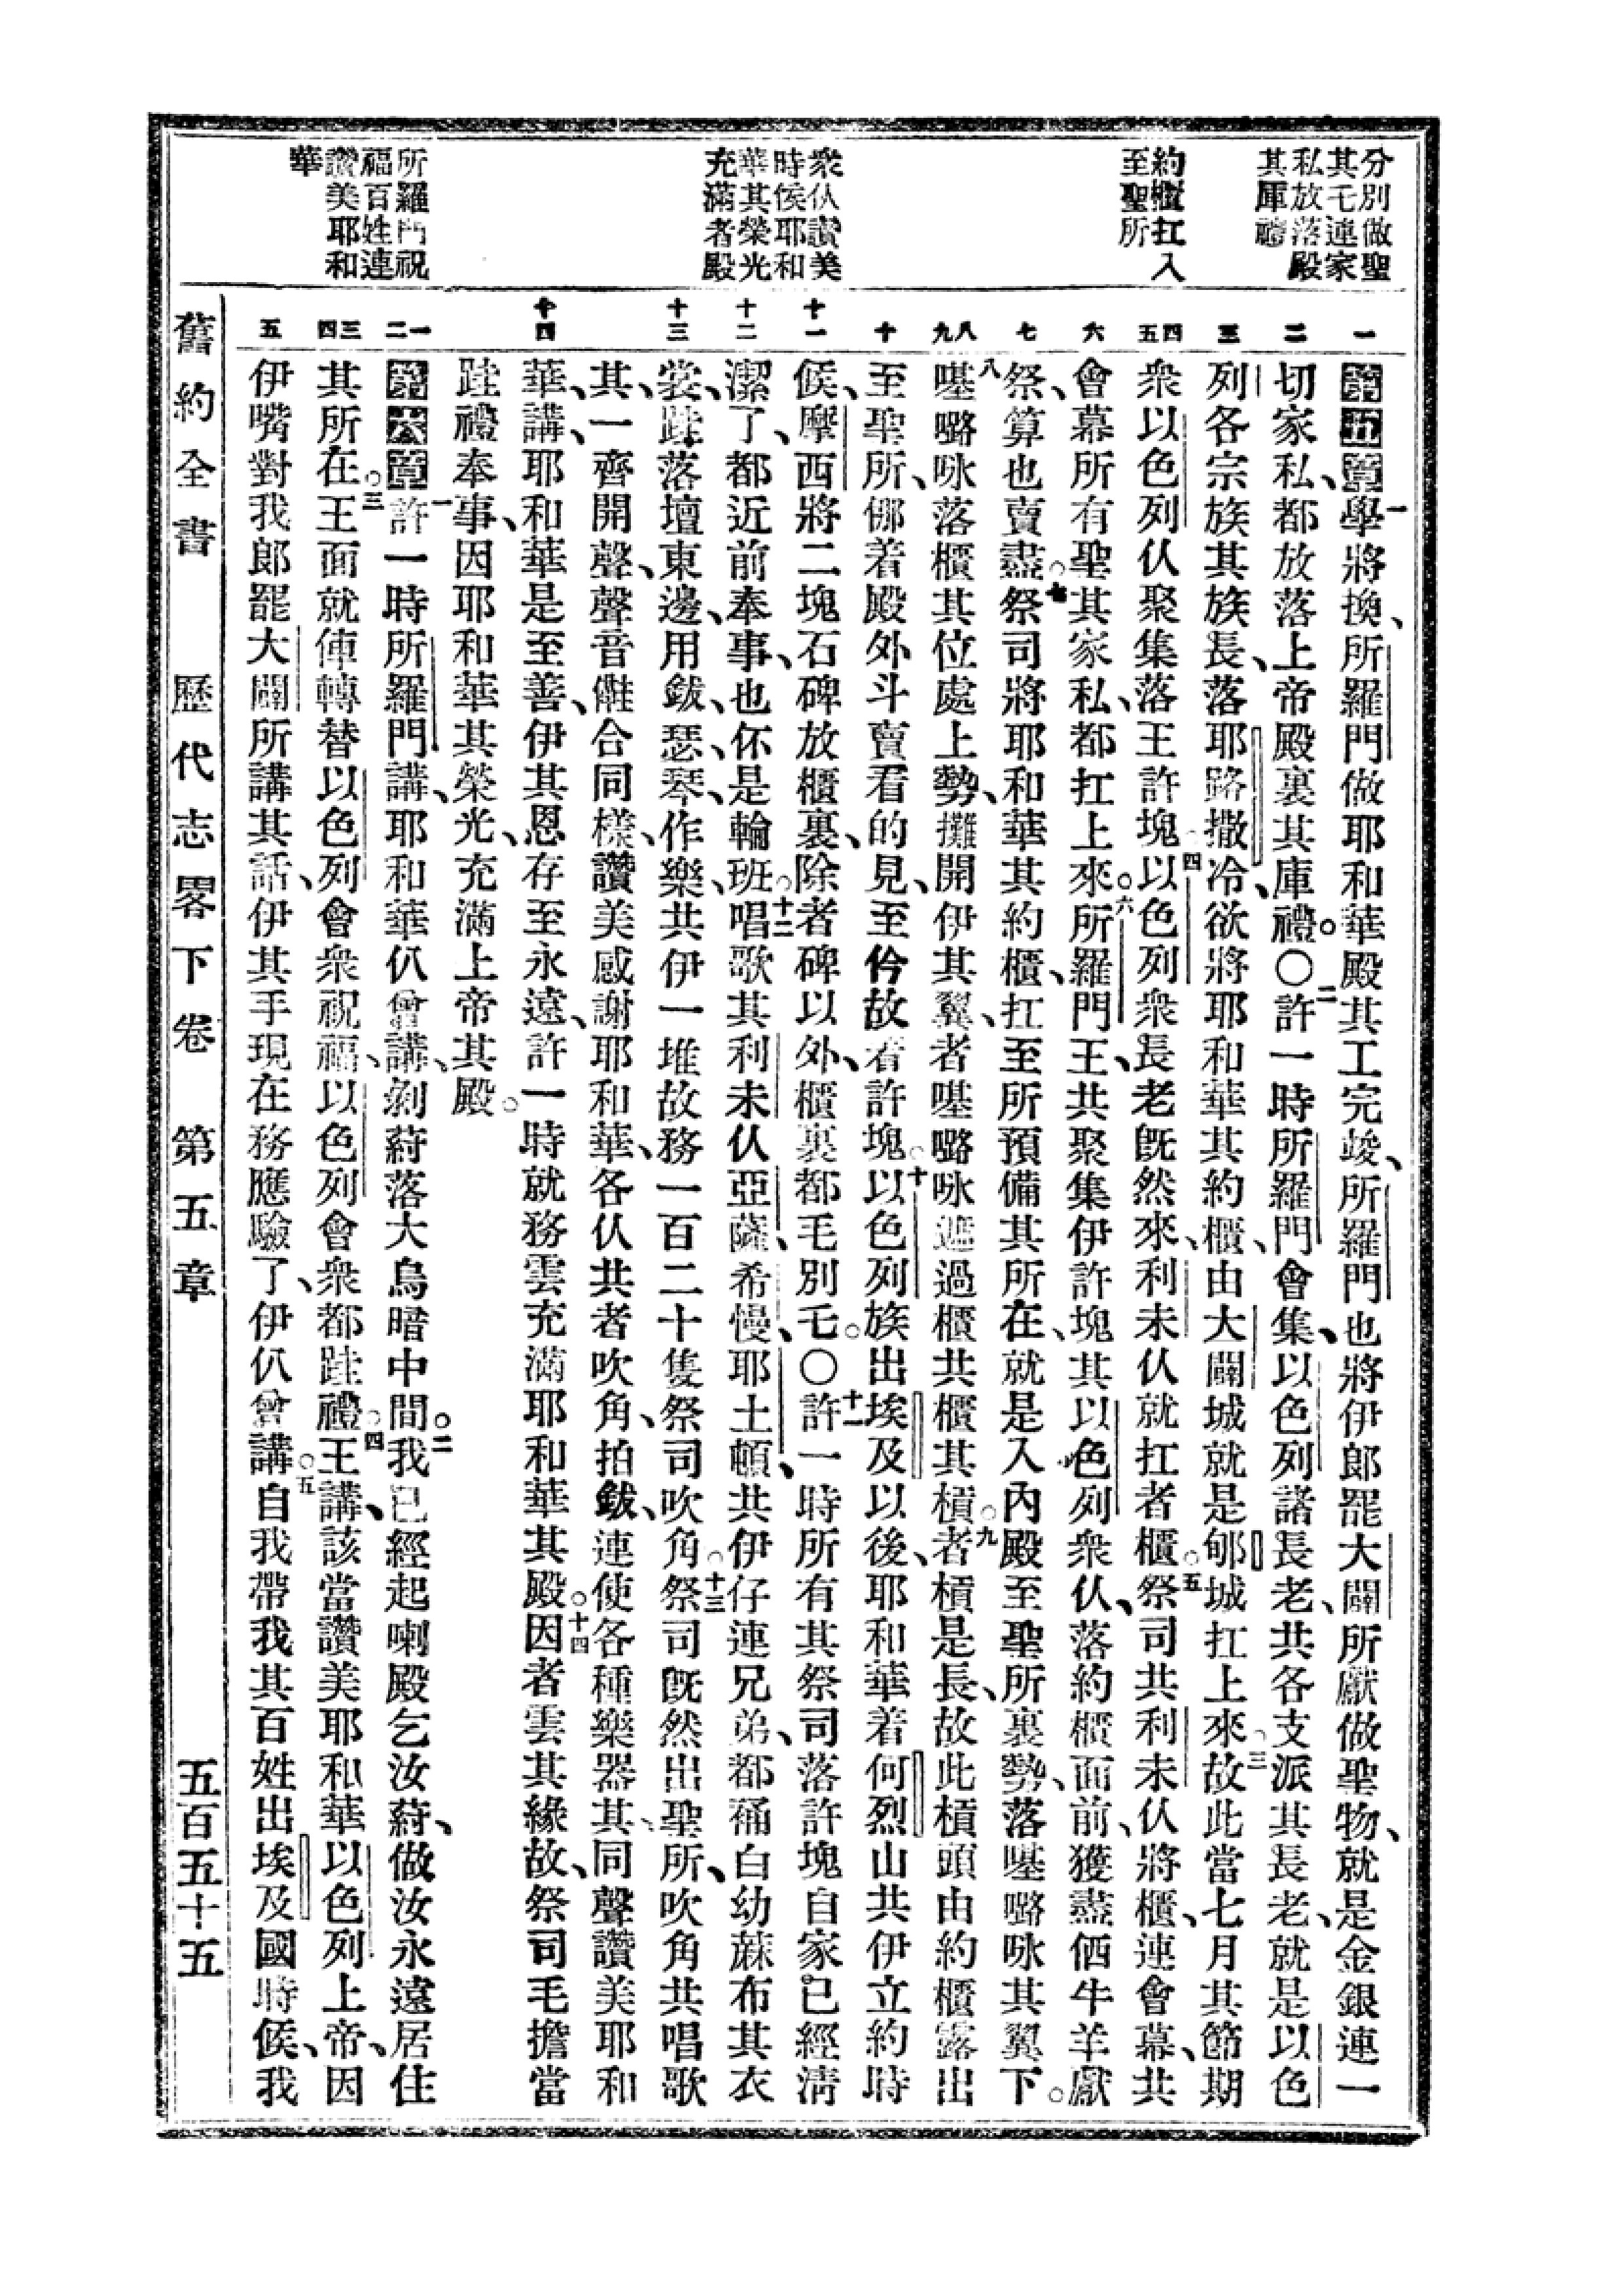 分別做聖
其乇連家
私放落殿
其庫禮
約櫃扛入
至聖所
衆仈讚美
時候耶和
華其榮光
充滿者殿
所羅門祝
福百姓連
讚美耶和
華
一
二
三
四五
六
七
八九
十
十一
十二
十三
十四
一二
三四
五
第五章一學將換、所羅門做耶和華殿其工完竣、所羅門也將伊郎罷大闢所獻做聖物、就是金銀連一
切家私、都放落上帝殿裏其庫禮。〇二許一時所羅門會集以色列諸長老、共各支派其長老、就是以色
列各宗族其族長、落耶路撒冷、欲將耶和華其約櫃、由大闢城就是郇城扛上來。三故此當七月其節期
衆以色列仈聚集落王許塊。四以色列衆長老旣然來、利未仈就扛者櫃。五祭司共利未仈將櫃、連會幕、共
會幕所有聖其家私、都扛上來。六所羅門王、共聚集伊許塊其以色列衆仈、落約櫃面前、獲盡価牛羊獻
祭、算也賣盡。七祭司將耶和華其約櫃、扛至所預備其所在、就是入內殿至聖所裏勢、落𠸄嚕咏其翼下。
八𠸄嚕咏落櫃其位處上勢、攤開伊其翼、者𠸄嚕咏遮過櫃共櫃其槓。九者槓是長、故此槓頭由約櫃露出
至聖所、僇着殿外斗賣看的見、至仱故着許塊。十以色列族出埃及以後、耶和華着何烈山共伊立約時
候、摩西將二塊石碑放櫃裏、除者碑以外、櫃裏都毛別乇。〇十一許一時所有其祭司落許塊自家已經清
潔了、都近前奉事、也伓是輪班。十二唱歌其利未仈亞薩、希慢、耶土頓、共伊仔連兄弟、都䘄白幼蔴布其衣
裳、跬落壇東邊、用鈸、瑟、琴、作樂、共伊一堆故務一百二十隻祭司吹角。十三祭司旣然出聖所、吹角共唱歌
其、一齊開聲、聲音傕合同樣、讚美感謝耶和華、各仈共者吹角、拍鈸、連使各種樂器其、同聲讚美耶和
華、講、耶和華是至善、伊其恩存至永遠、許一時就務雲充滿耶和華其殿。十四因者雲其緣故、祭司毛擔當
跬禮奉事、因耶和華其榮光、充滿上帝其殿。
第六章一許一時所羅門講、耶和華仈曾講、剃蒔落大烏暗中間。二我已經起喇殿乞汝蒔、做汝永遠居住
其所在。三王面就俥轉替以色列會衆祝福、以色列會衆都跬禮。四王講、該當讚美耶和華以色列上帝、因
伊嘴對我郎罷大闢所講其話、伊其手現在務應驗了、伊仈曾講。五自我帶我其百姓出埃及國時候、我
舊約全書 歷代志畧下卷 第五章 五百五十五